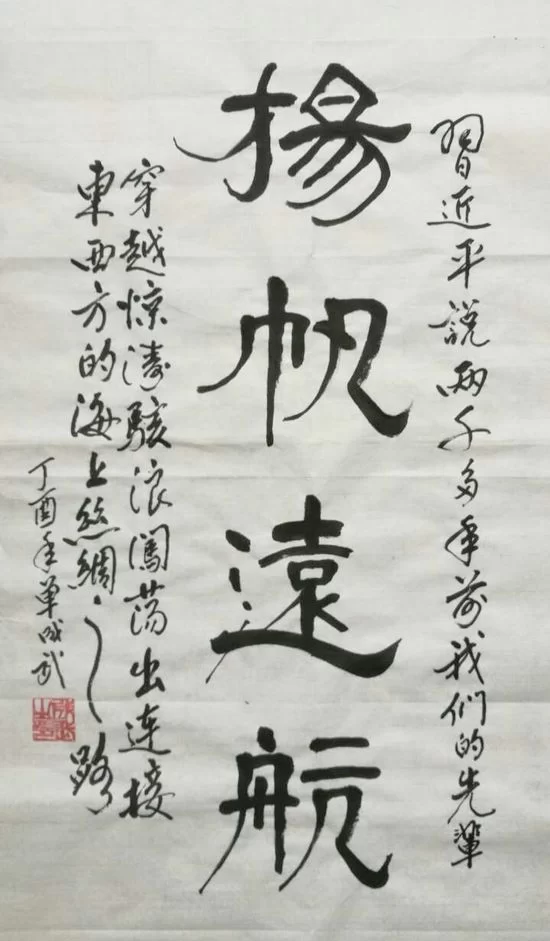 揚帆遠航
習近平説兩千多年前我们的先輩
穿越惊濤駭浪闖荡出连接
東西方的海上丝綢之路
丁酉年單成武